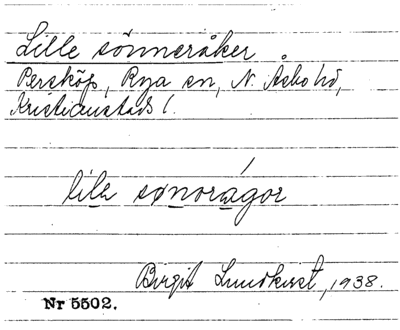 Lille sönneråker
Persköp, Rya sn, N. Åsbo hd,
Kristianstads l.
lila sønorágor
Birgit Lundkvist, 1938.
Nr 5502.